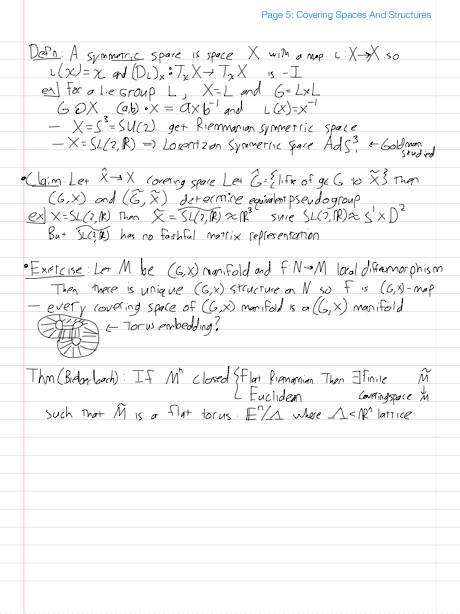 Page 5: Covering Spaces And Structures
Defn: A symmetric space is space X with a map ι: X→X so
ι(x)=x and (Dι)ₓ: TₓX → TₓX is -I
ex] for a Lie Group L, X=L and G=L×L
G↻X (a,b)·x = axb⁻¹ and ι(x)=x⁻¹
- X=S³=SU(2) get Riemannian symmetric space
- X=SL(2,R) ⇒ Lorentzian Symmetric space AdS³! ← Goldman studied
• Claim: Let X̃→X covering space Let G̃={lifts of g∈G to X̃} Then
(G,X) and (G̃,X̃) determine equivalent pseudogroup
ex] X=SL(2,R) Then X̃=S̃L(2,R)≈R³ since SL(2,R)≈S¹×D²
But S̃L(2,R) has no faithful matrix representation
• Exercise: Let M be (G,X) manifold and f:N→M local diffeomorphism
Then there is unique (G,X) structure on N so f is (G,X)-map
- every covering space of (G,X) manifold is a (G,X) manifold
← Torus embedding?
Thm (Bieberbach): If Mⁿ closed { Flat Riemannian Then ∃ finite M̃
Euclidean covering space ↓ M
such that M̃ is a flat torus: Eⁿ/Λ where Λ<Rⁿ lattice